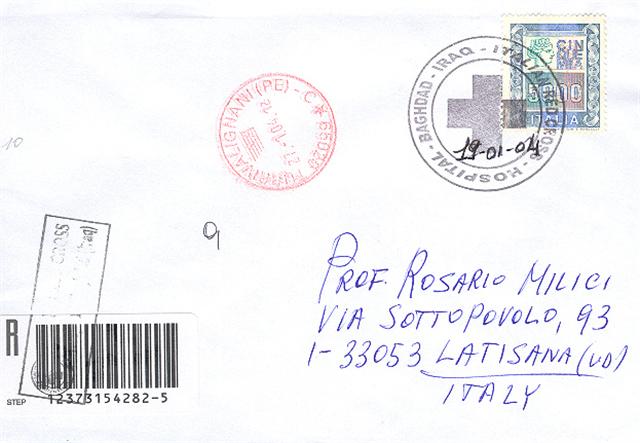 CINQUEMILA
5000
ITALIA
HOSPITAL - BAGHDAD - IRAQ - ITALIAN RED CROSS -
19-01-04
(PE) - C * 65020
10
9
PROF. ROSARIO MILICI
VIA SOTTOPOVOLO, 93
I-33053 LATISANA (UD)
ITALY
R
STEP
12373154282-5